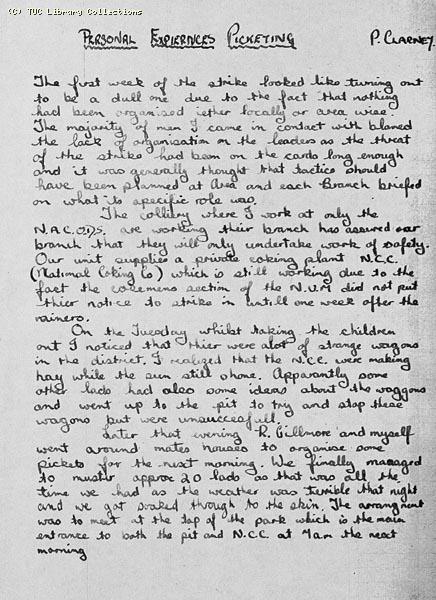 (C) TUC Library Collections
PERSONAL EXPIERNCES PICKETING P. CLARNEY.
The first week of the strike looked like turning out
to be a dull one due to the fact that nothing
had been organised iether locally or area wise.
The majority of men I came in contact with blamed
the lack of organisation on the leaders as the threat
of the strike had been on the cards long enough
and it was generally thought that tactics should
have been planned at Area and each Branch briefed
on what is specific role was.
The colliery where I work at only the
N.A.C.O.D.S. are working thier branch has assured our
branch that they will only undertake work of safety.
Our unit supplies a private coking plant N.C.C.
(National Coking Co) which is still working due to the
fact the cokemens section of the N.U.M did not put
thier notice to strike in untill one week after the
miners.
On the Tuesday whilst taking the children
out I noticed that thier were alot of strange wagons
in the district. I realized that the N.C.C. were making
hay while the sun still shone. Apparantly some
other lads had also some ideas about the waggons
and went up to the pit to try and stop these
wagons but were unsuccesfull.
Later that evening R. Gillmore and myself
went around mates houses to organise some
pickets for the next morning. We finally managed
to muster approx 20 lads as that was all the
time we had as the weather was terrible that night
and we got soaked through to the skin. The arrangment
was to meet at the top of the park which is the main
entrance to both the pit and N.C.C. at 7am the next
morning